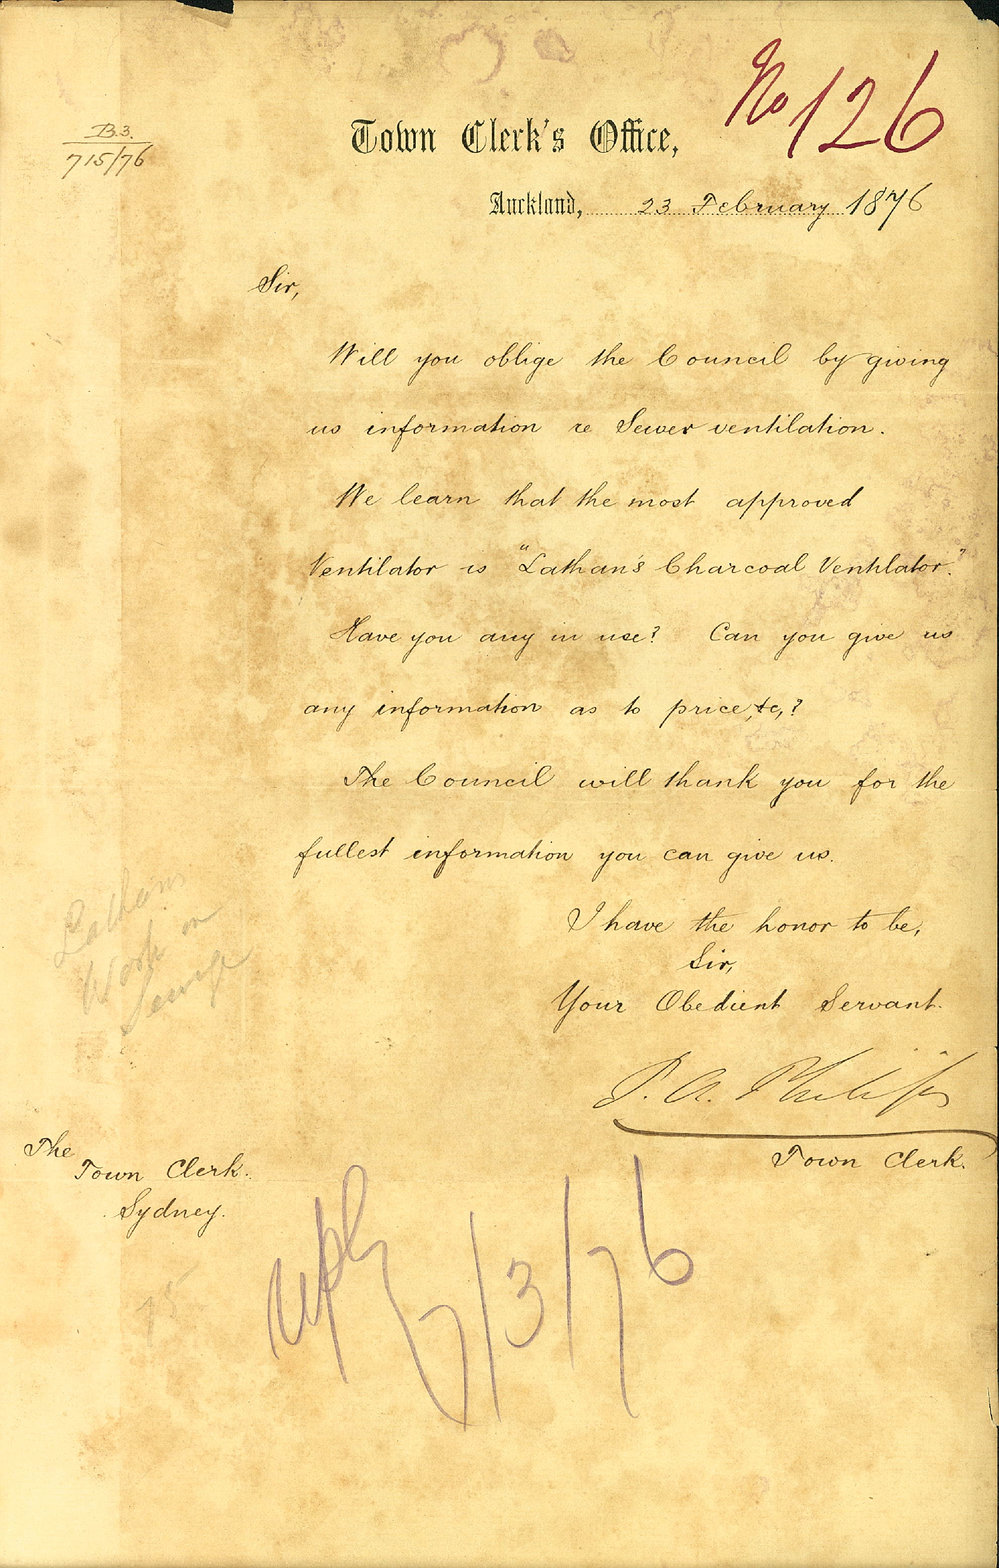 No 126
B.3.
715/76
Town Clerk's Office,
Auckland, 23 February 1876
Sir,
Will you oblige the Council by giving
us information re Sewer ventilation.
We learn that the most approved
Ventilator is "Lathan's Charcoal Ventilator."
Have you any in use? Can you give us
any information as to price, &c,?
The Council will thank you for the
fullest information you can give us.
I have the honor to be,
Sir,
Your Obedient Servant.
P. A. Philips
Town Clerk.
Lathams
Work on
Sewage
The
Town Clerk.
Sydney.
reply 7/3/76